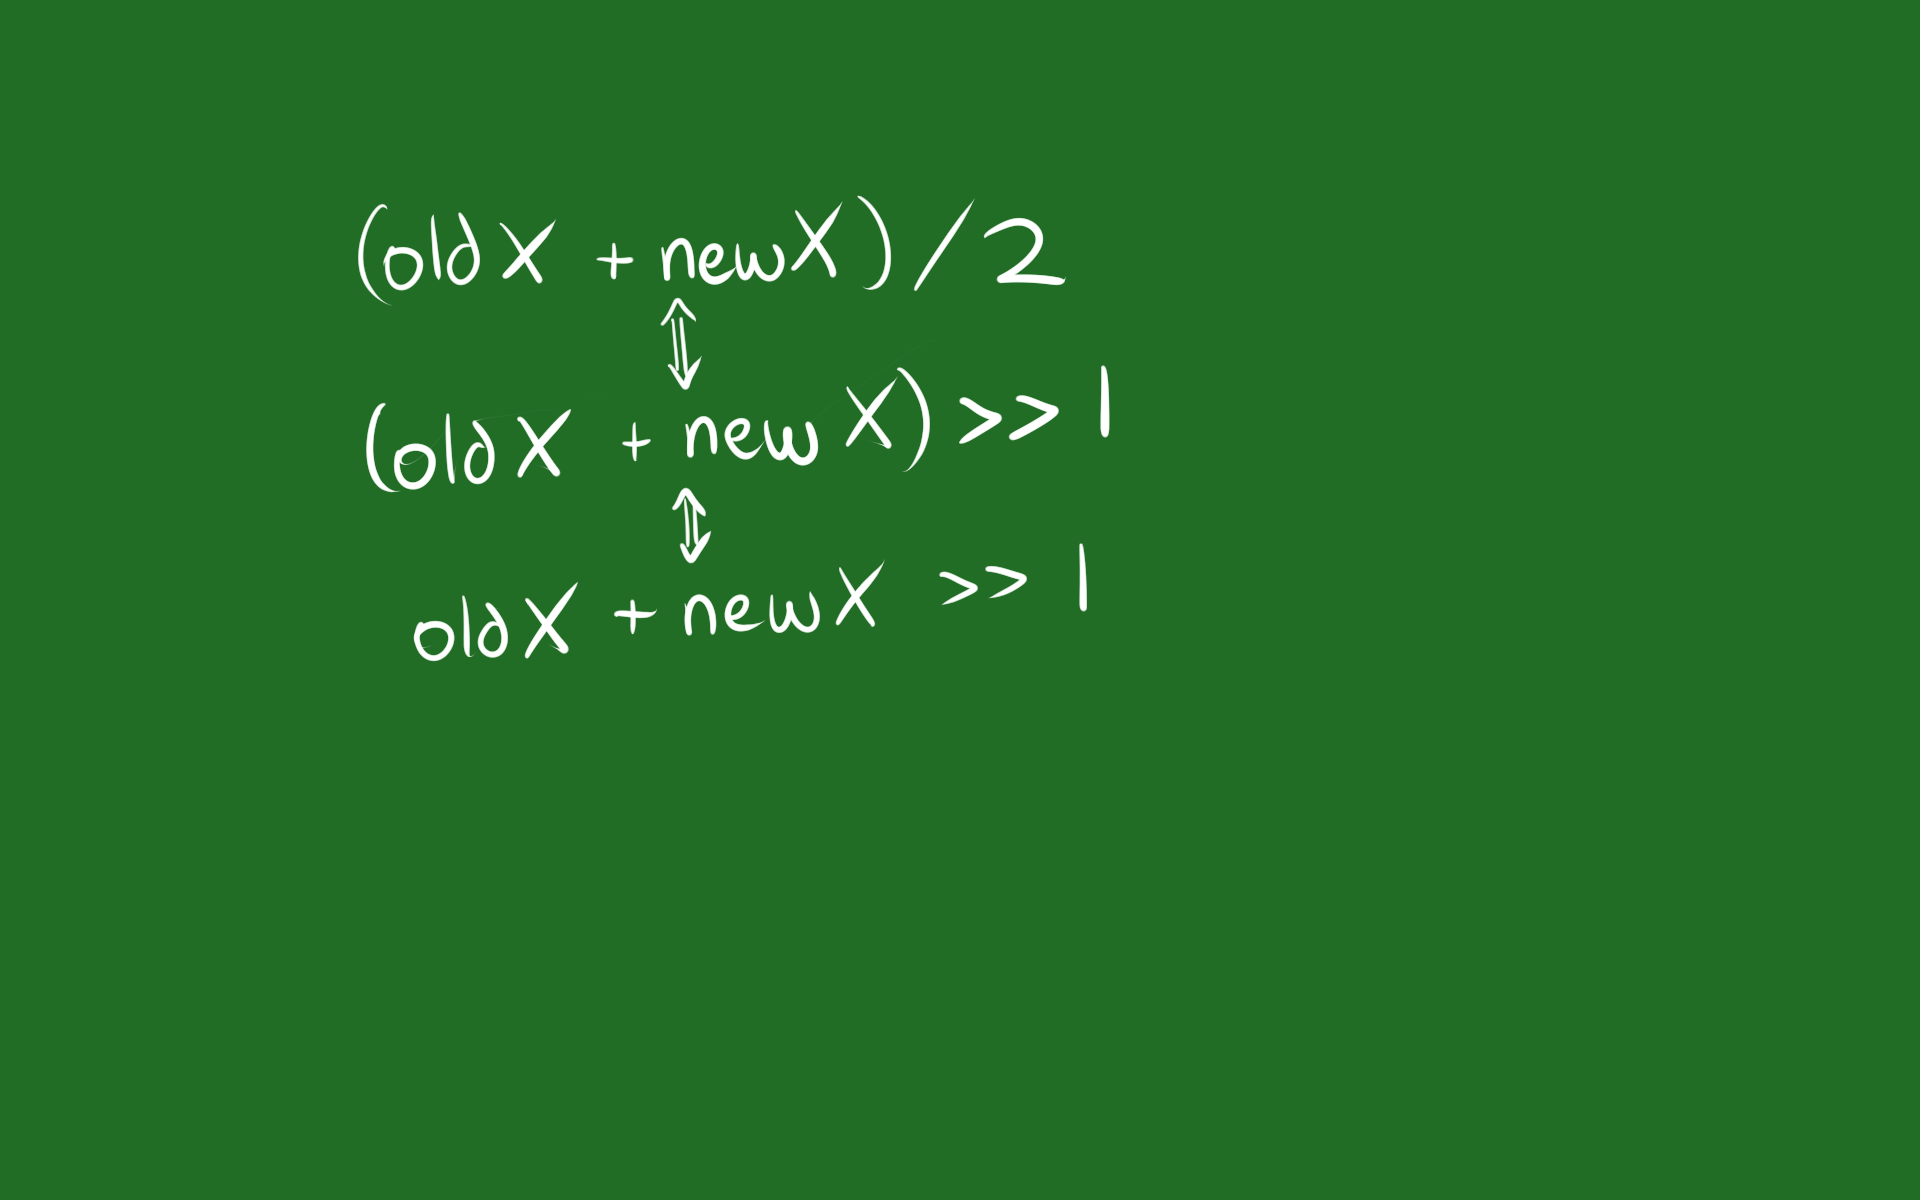 (oldX + newX)/2
⇕
(oldX + newX) >> 1
⇕
oldX + newX >> 1